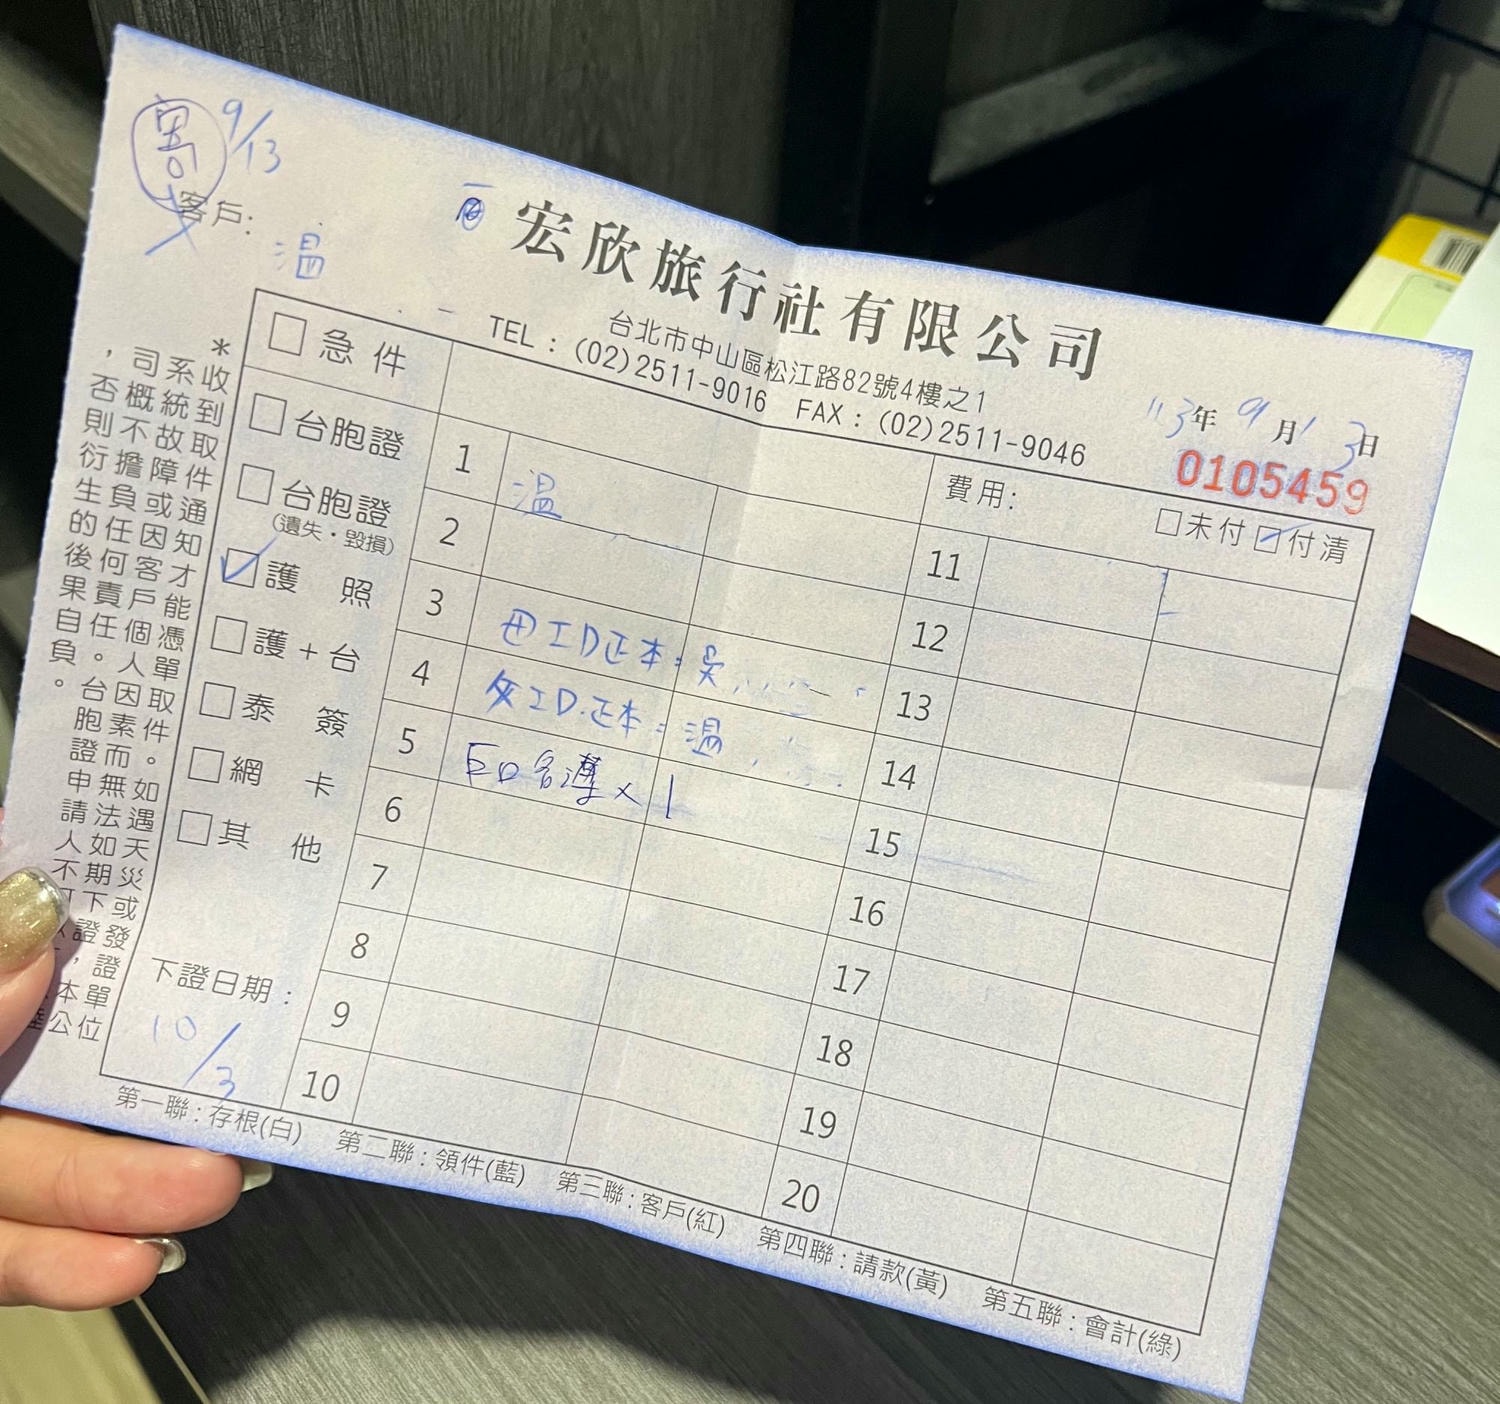 9/13
客戶:
温
宏欣旅行社有限公司
台北市中山區松江路82號4樓之1
TEL：(02)2511-9016 FAX：(02)2511-9046
113年9月13日
0105459
費用:
□未付 ☑付清
□急件
□台胞證
□台胞證
(遺失・毀損)
☑護照
□護+台
□泰簽
□網卡
□其他
下證日期:
10/3
1 温
2
3 母ID正本:吳
4 父ID正本:温
5 戶口名簿×1
6
7
8
9
10
11
12
13
14
15
16
17
18
19
20
*收到取件通知才能憑單取件。如遇天災或
系統故障或因客戶個人因素而無法如期下證
司概不擔負任何責任。台胞證申請人不
，否則衍生的後果自負。
第一聯:存根(白) 第二聯:領件(藍) 第三聯:客戶(紅) 第四聯:請款(黃) 第五聯:會計(綠)